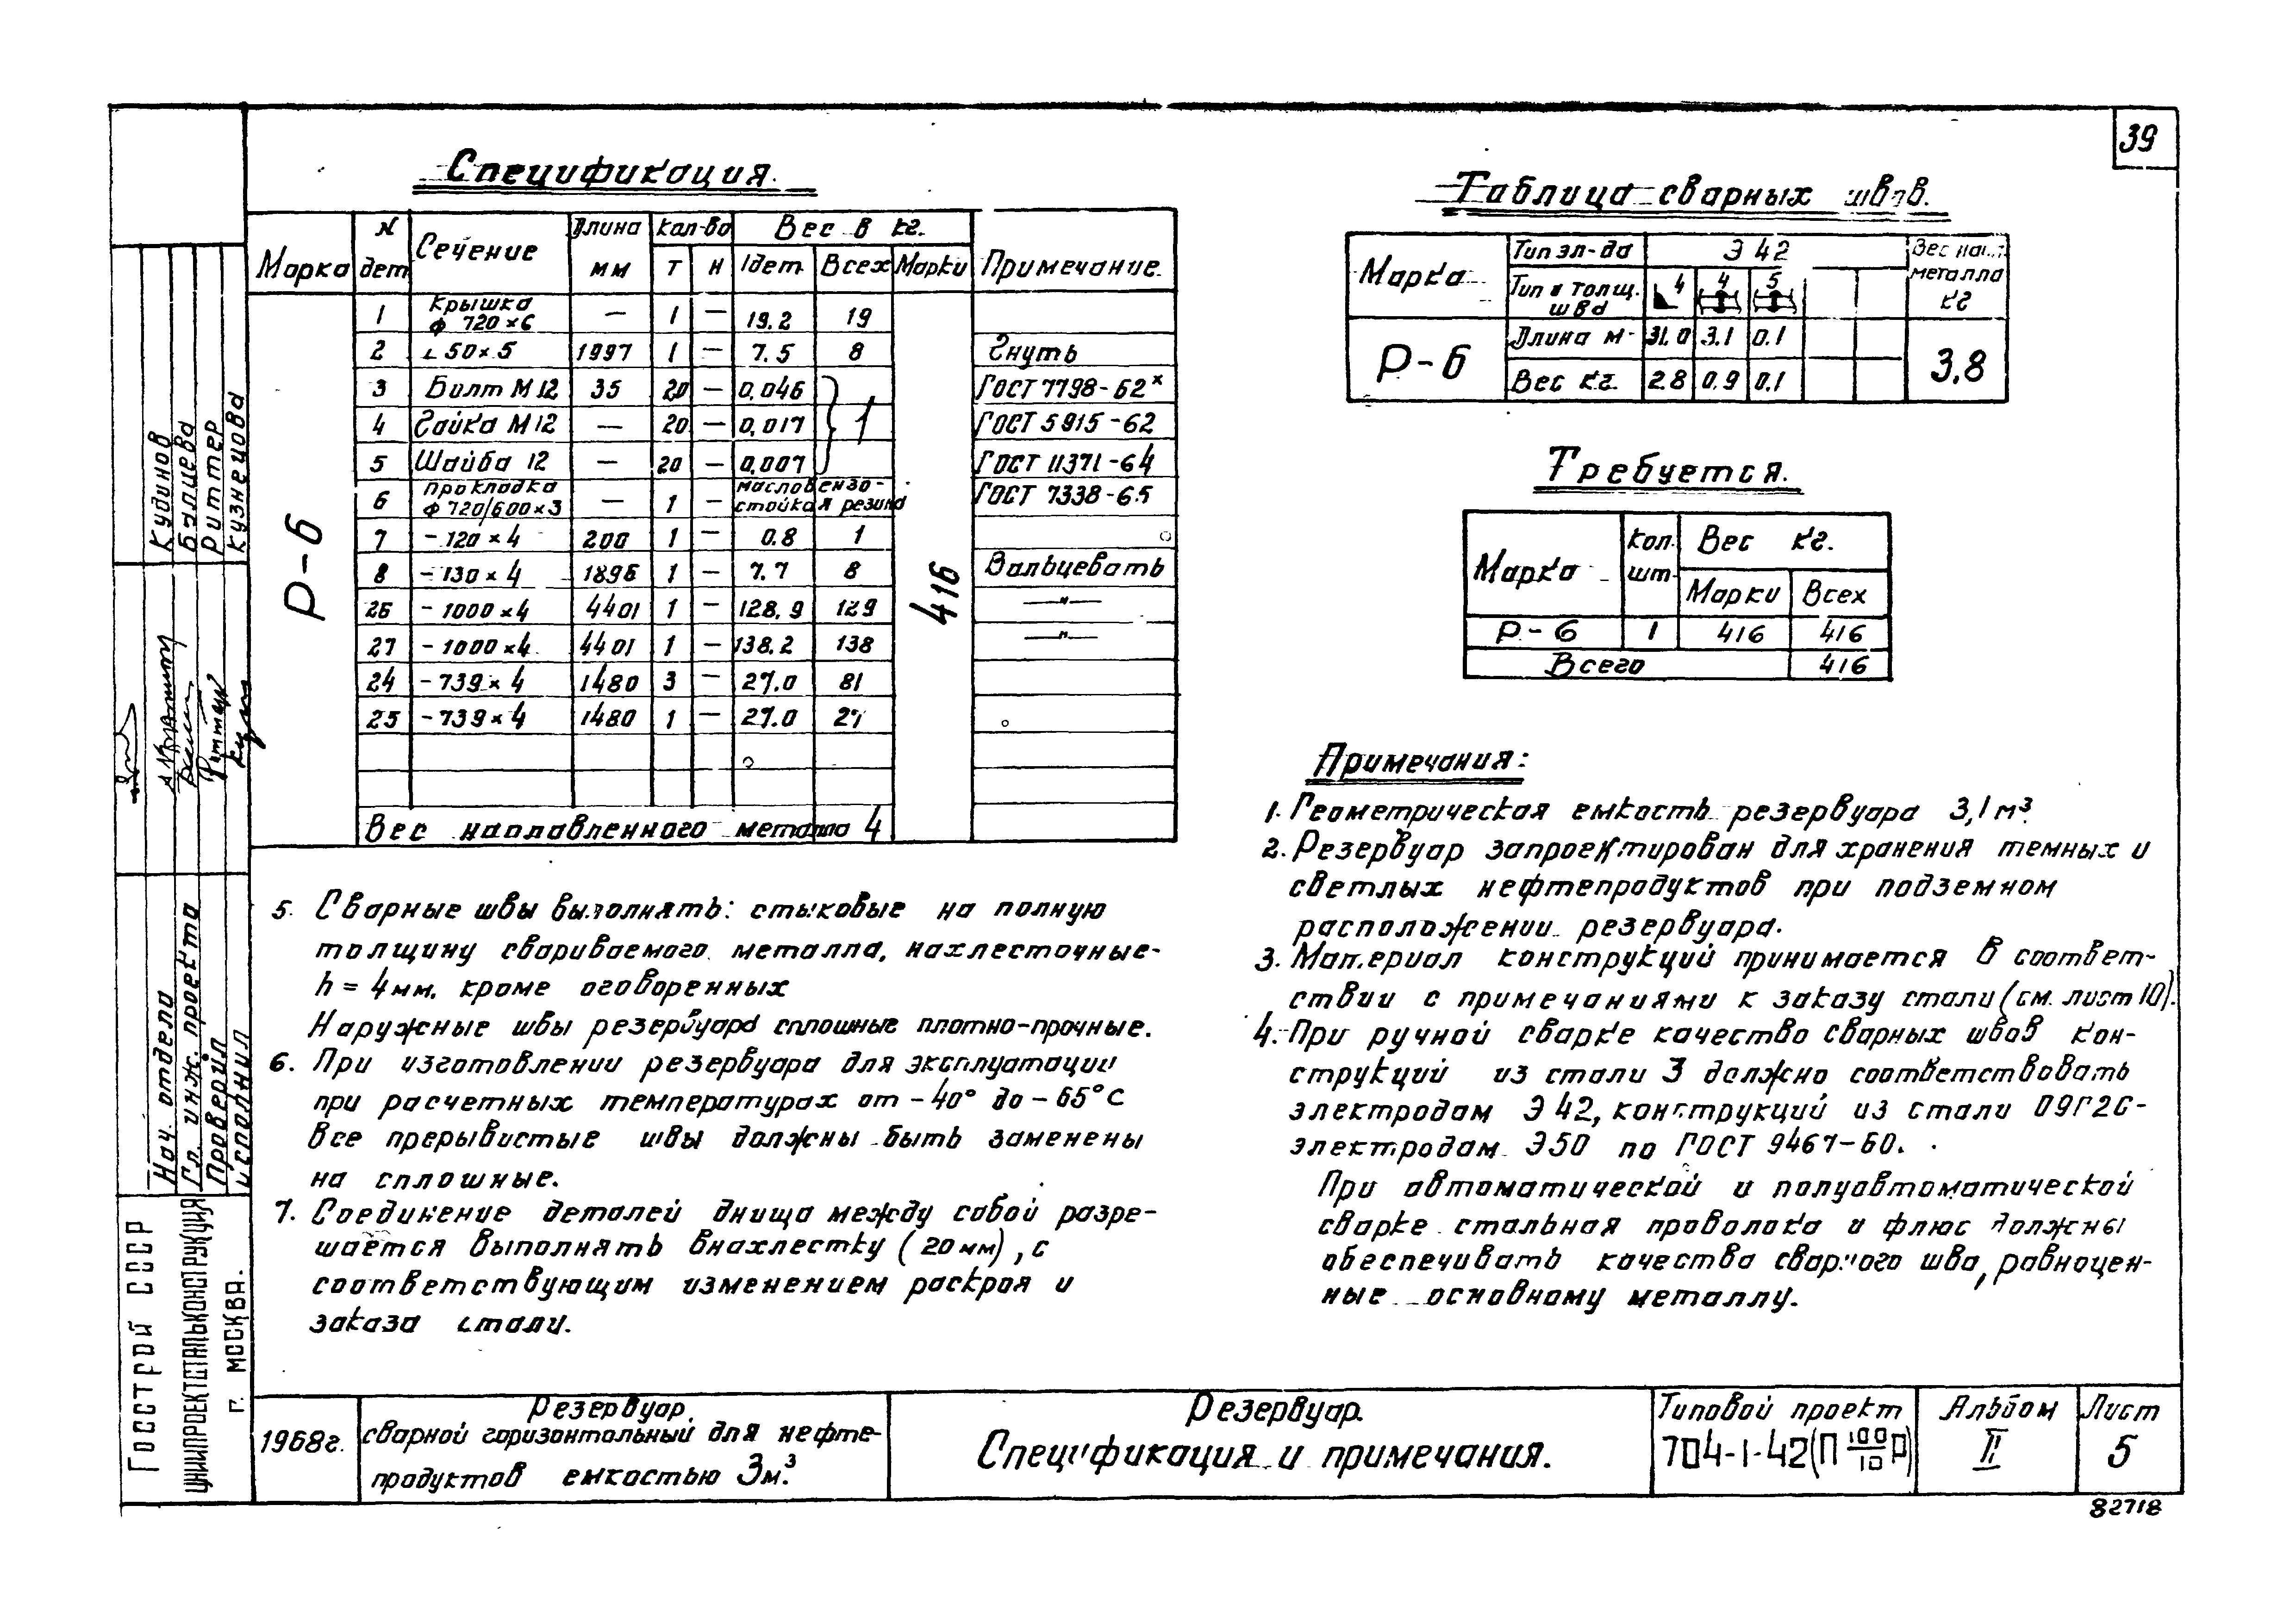 39
Спецификация.
Марка N дет. Сечение Длина мм Кол-во Т Н Вес в кг. 1дет. Всех Марки Примечание.
Р-6
416
1 Крышка ф 720×6 — 1 — 19.2 19
2 ∟50×5 1997 1 — 7.5 8 Гнуть
3 Болт М12 35 20 — 0,046 ГОСТ 7798-62ˣ
4 Гайка М12 — 20 — 0,017 1 ГОСТ 5915-62
5 Шайба 12 — 20 — 0,007 ГОСТ 11371-64
6 Прокладка ф 720/600×3 — 1 — маслобензо-стойкая резина ГОСТ 7338-65
7 -120×4 200 1 — 0.8 1
8 -130×4 1896 1 — 7.7 8 Вальцевать
26 -1000×4 4401 1 — 128.9 129 —"—
27 -1000×4 4401 1 — 138.2 138 —"—
24 -739×4 1480 3 — 27.0 81
25 -739×4 1480 1 — 27.0 27
Вес наплавленного металла 4
Таблица сварных швов.
Марка Тип эл-да Э 42 Вес нап. металла кг
Тип и толщ. шва 4 4 5
Р-6 Длина м 31.0 3.1 0.1 3.8
Вес кг. 2.8 0.9 0.1
Требуется.
Марка Кол. шт. Вес кг. Марки Всех
Р-6 1 416 416
Всего 416
Примечания:
1. Геометрическая емкость резервуара 3,1 м³.
2. Резервуар запроектирован для хранения темных и
светлых нефтепродуктов при подземном
расположении резервуара.
3. Материал конструкций принимается в соответ-
ствии с примечаниями к заказу стали (см. лист 10).
4. При ручной сварке качество сварных швов кон-
струкций из стали 3 должно соответствовать
электродам Э 42, конструкций из стали 09Г2С-
электродам Э50 по ГОСТ 9467-60.
При автоматической и полуавтоматической
сварке стальная проволока и флюс должны
обеспечивать качества сварного шва, равноцен-
ные основному металлу.
5. Сварные швы выполнять: стыковые на полную
толщину свариваемого металла, нахлесточные-
h = 4 мм, кроме оговоренных
Наружные швы резервуара сплошные плотно-прочные.
6. При изготовлении резервуара для эксплуатации
при расчетных температурах от -40° до -65°С
все прерывистые швы должны быть заменены
на сплошные.
7. Соединение деталей днища между собой разре-
шается выполнять внахлестку (20 мм), с
соответствующим изменением раскроя и
заказа стали.
Госстрой СССР
ЦНИИПРОЕКТСТАЛЬКОНСТРУКЦИЯ
г. МОСКВА.
Нач. отдела Кудинов
Гл. инж. проекта
Проверил Риттер
Исполнил Кузнецова
1968г.
Резервуар.
сварной горизонтальный для нефте-
продуктов емкостью 3м³.
Резервуар.
Спецификация и примечания.
Типовой проект
704-1-42(П 100/10 Р)
Альбом
II
Лист
5
82718